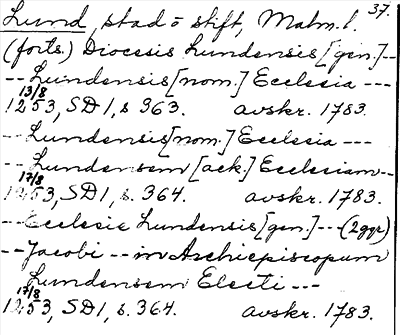 37.
Lund, stad o stift, Malm. l.
(forts.) Diocesis Lundensis [gen.]--
-- Lundensis [nom.] Ecclesia ---
13/8
1253, SD 1, s. 363. avskr. 1783.
-- Lundensis [nom.] Ecclesia ---
-- Lundensem [ack.] Ecclesiam --
17/8
1253, SD 1, s. 364. avskr. 1783.
-- Ecclesie Lundensis [gen.] --- (2ggr)
-- Jacobi -- in Archiepiscopum
Lundensem Electi ---
17/8
1253, SD 1, s. 364. avskr. 1783.